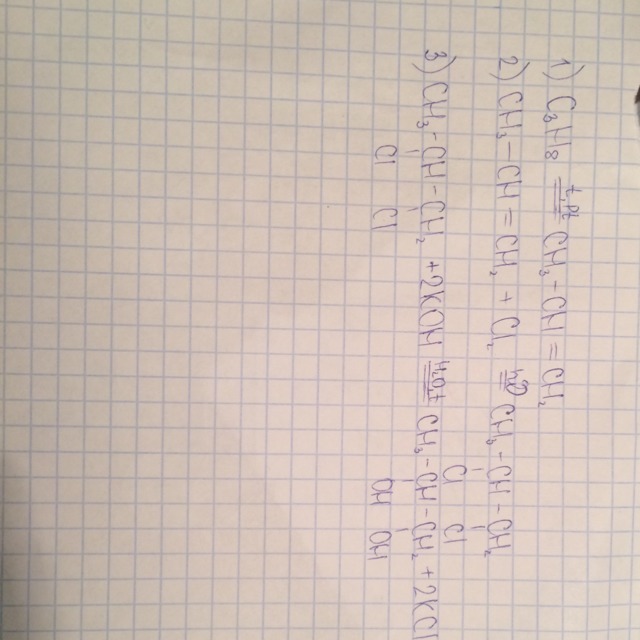 1) C₃H₈ t, Pt = CH₃ – CH = CH₂
2) CH₃ – CH = CH₂ + Cl₂ = CH₃ – CH – CH₂
Cl Cl
3) CH₃ – CH – CH₂ + 2KOH H₂O, t = CH₃ – CH – CH₂ + 2KCl
Cl Cl OH OH